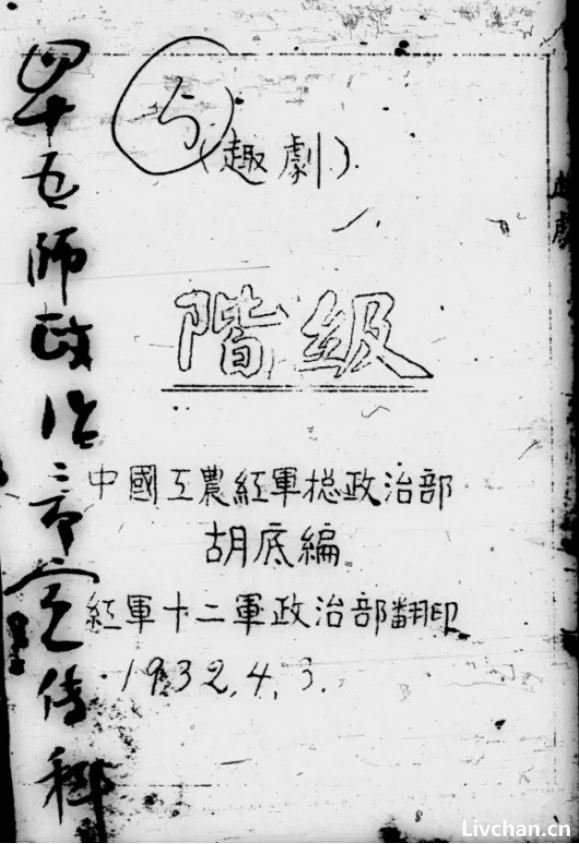 5
(趣劇)
階級
中國工農紅軍總政治部
胡底編
紅軍十二軍政治部翻印
1932.4.3.
四十五師政治部宣传科
趣劇
Livchan.cn